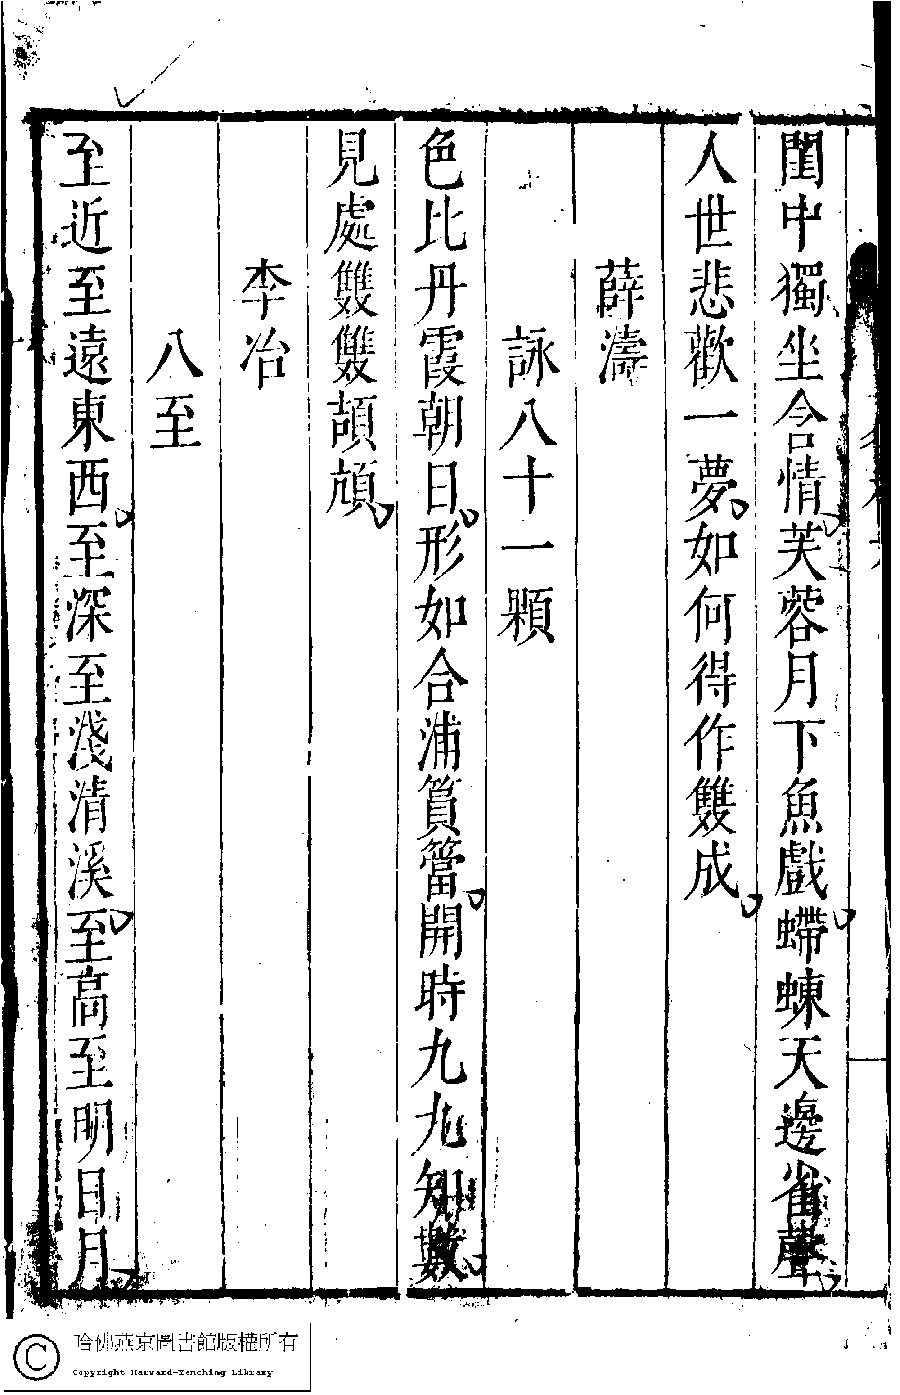 閨中獨坐含情芙蓉月下魚戲螮蝀天邊雀聲
人世悲歡一夢如何得作雙成
薛濤
詠八十一顆
色比丹霞朝日形如合浦篔簹開時九九知數
見處雙雙頡頏
李冶
八至
至近至遠東西至深至淺清溪至高至明日月
哈佛燕京圖書館版權所有
Copyright Harvard-Yenching Library